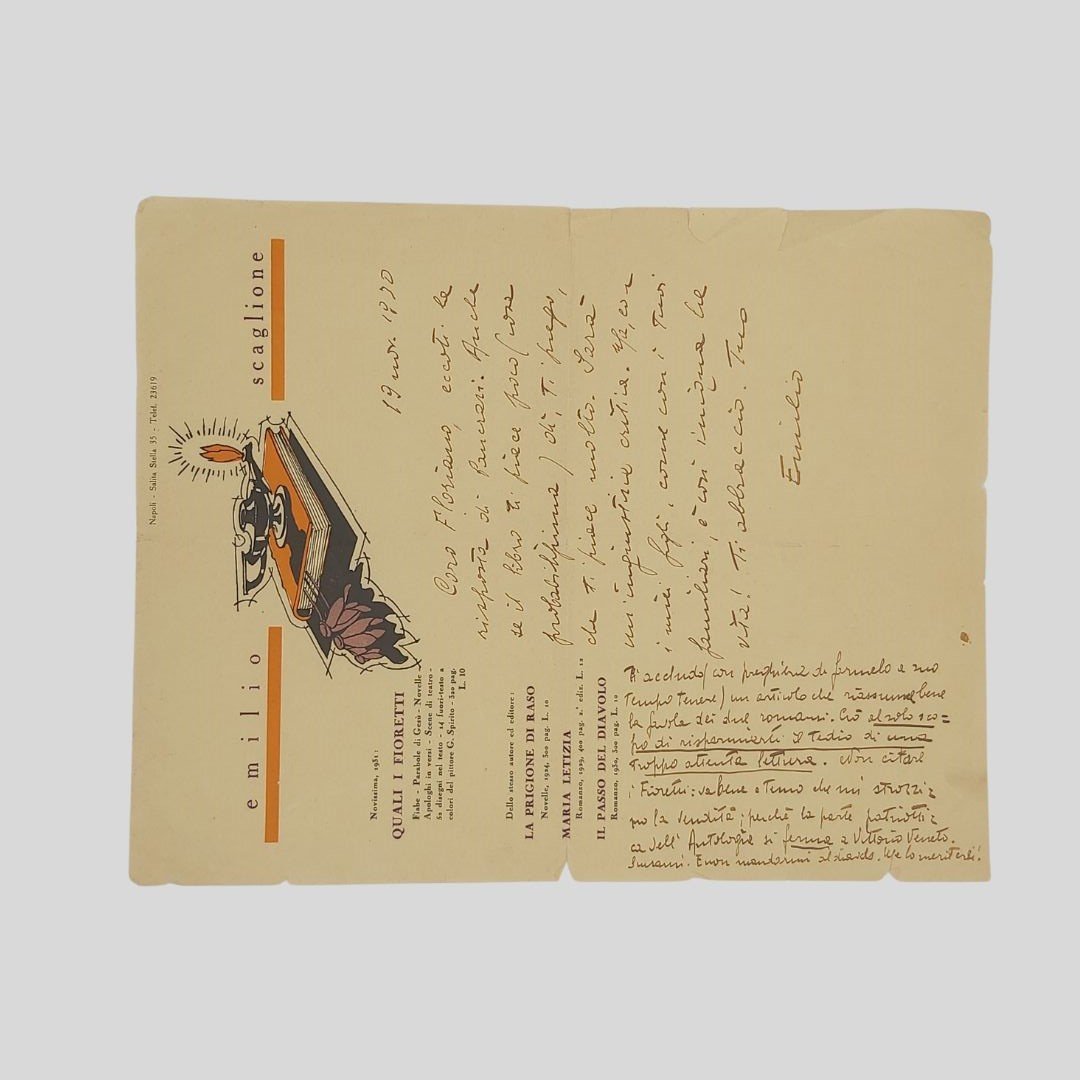 Napoli - Salita Stella 35 - Telef. 23619
emilio scaglione
Novissima, 1931:
QUALI I FIORETTI
Fiabe - Parabole di Gesù - Novelle
Apologhi in versi - Scene di teatro -
62 disegni nel testo - 24 fuori-testo a
colori del pittore G. Spirito - 320 pag.
L. 10
Dello stesso autore ed editore:
LA PRIGIONE DI RASO
Novelle, 1924, 300 pag. L. 10
MARIA LETIZIA
Romanzo, 1929, 400 pag. 2.ª ediz. L. 12
IL PASSO DEL DIAVOLO
Romanzo, 1930, 300 pag. L. 10
19 nov. 1930
Caro Floriano, eccoti la
risposta di Pancrazi. Anche
se il libro ti piace poco (cosa
probabilissima) dì, ti prego,
che ti piace molto. Sarà
un'ingiustizia critica. Ma, con
i miei figli, come con i tuoi
familiari, è così iniqua la
vita! Ti abbraccio. Tuo
Emilio
Ti accludo (con preghiera di farmelo a suo
tempo tenere) un articolo che riassume bene
la favola dei due romanzi. Ciò al solo sco=
po di risparmiarti il tedio di una
troppo attenta lettura. Non citare
i Fioretti: va bene e temo che mi strozzi=
no la vendita; perchè la parte patriotti=
ca dell'Antologia si ferma a Vittorio Veneto.
Scusami. E non mandarmi al diavolo. Me lo meriterei!